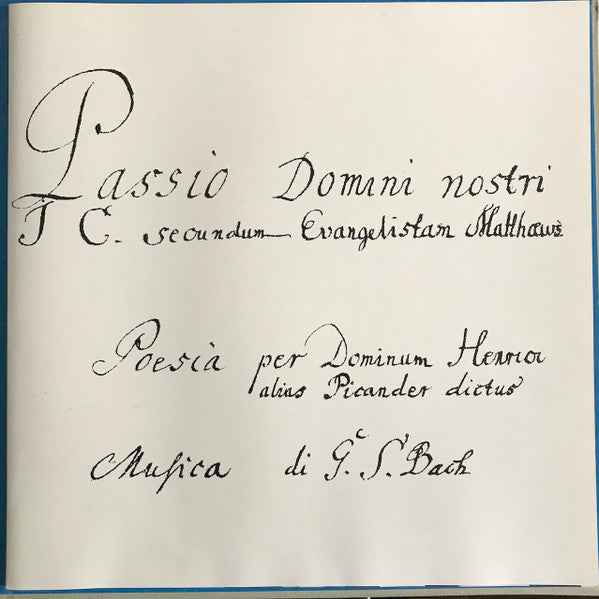 Passio Domini nostri
J C. secundum Evangelistam Matthaeum
Poesia per Dominum Henrici
alias Picander dictus
Musica di G. S. Bach